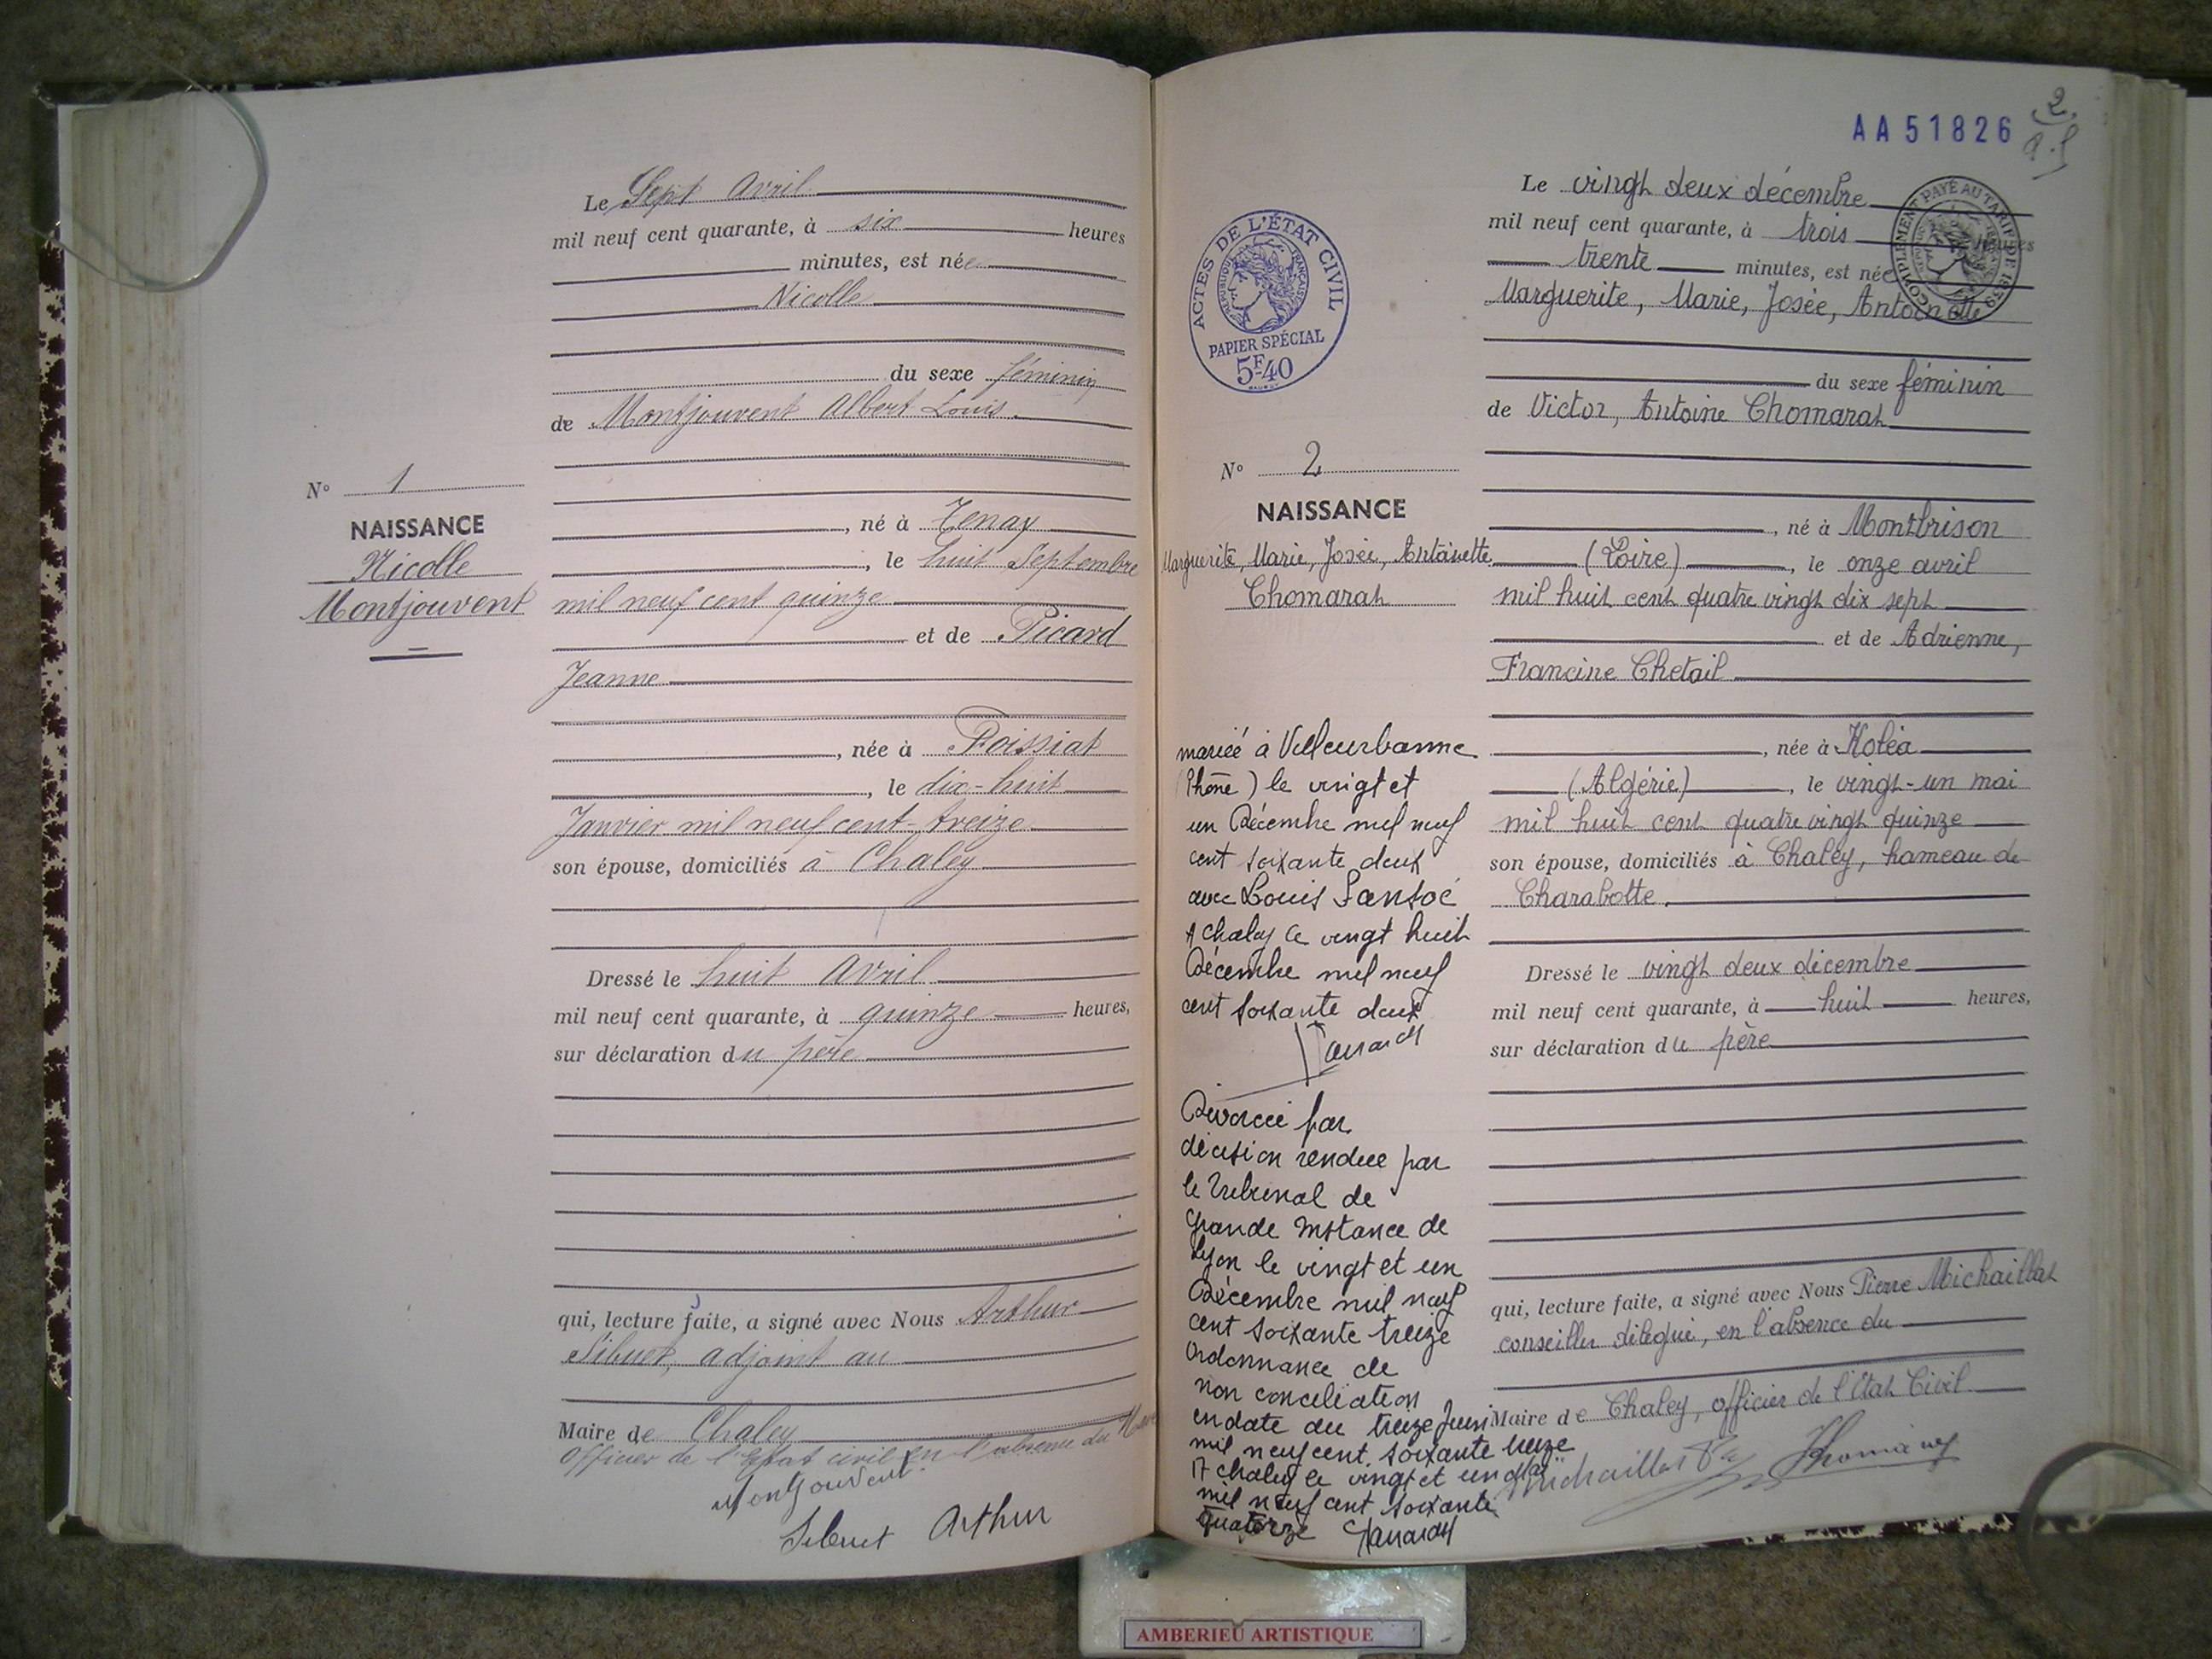 Le Sept Avril
mil neuf cent quarante, à six heures
minutes, est née
Nicolle
du sexe féminin
de Montjouvent Albert Louis
N° 1
NAISSANCE
Nicolle
Montjouvent
, né à Tenay
, le huit Septembre
mil neuf cent quinze
et de Picard
Jeanne
, née à Foissiat
, le dix-huit
Janvier mil neuf cent-treize
son épouse, domiciliés à Chaley
Dressé le huit Avril
mil neuf cent quarante, à quinze heures,
sur déclaration du père
qui, lecture faite, a signé avec Nous Arthur
Sibuet, adjoint au
Maire de Chaley
Officier de l'Etat civil en l'absence du Maire
Montjouvent
Sibuet Arthur
2
AA51826
ACTES DE L'ÉTAT CIVIL
RÉPUBLIQUE FRANÇAISE
PAPIER SPÉCIAL
5F40
COMPLÉMENT PAYÉ AU TARIF DE 1939
Le vingt deux décembre
mil neuf cent quarante, à trois heures
trente minutes, est née
Marguerite, Marie, Josée, Antoinette
du sexe féminin
de Victor, Antoine Chomarat
N° 2
NAISSANCE
Marguerite, Marie, Josée, Antoinette
Chomarat
, né à Montbrison
(Loire), le onze avril
mil huit cent quatre vingt dix sept
et de Adrienne,
Francine Chetail
, née à Koléa
(Algérie), le vingt-un mai
mil huit cent quatre vingt quinze
son épouse, domiciliés à Chaley, hameau de
Charabotte.
Dressé le vingt deux décembre
mil neuf cent quarante, à huit heures,
sur déclaration du père
qui, lecture faite, a signé avec Nous Pierre Michaillat
conseiller délégué, en l'absence du
Maire de Chaley, officier de l'Etat Civil
Michaillat
mariée à Villeurbanne
(Rhône) le vingt et
un Décembre mil neuf
cent soixante deux
avec Louis Sansoé
A Chaley le vingt huit
Décembre mil neuf
cent soixante deux
Divorcée par
décision rendue par
le Tribunal de
Grande Instance de
Lyon le vingt et un
Décembre mil neuf
cent soixante treize
Ordonnance de
non conciliation
en date du treize Juin
mil neuf cent soixante treize
A Chaley le vingt et un Mai
mil neuf cent soixante
quatorze
AMBERIEU ARTISTIQUE